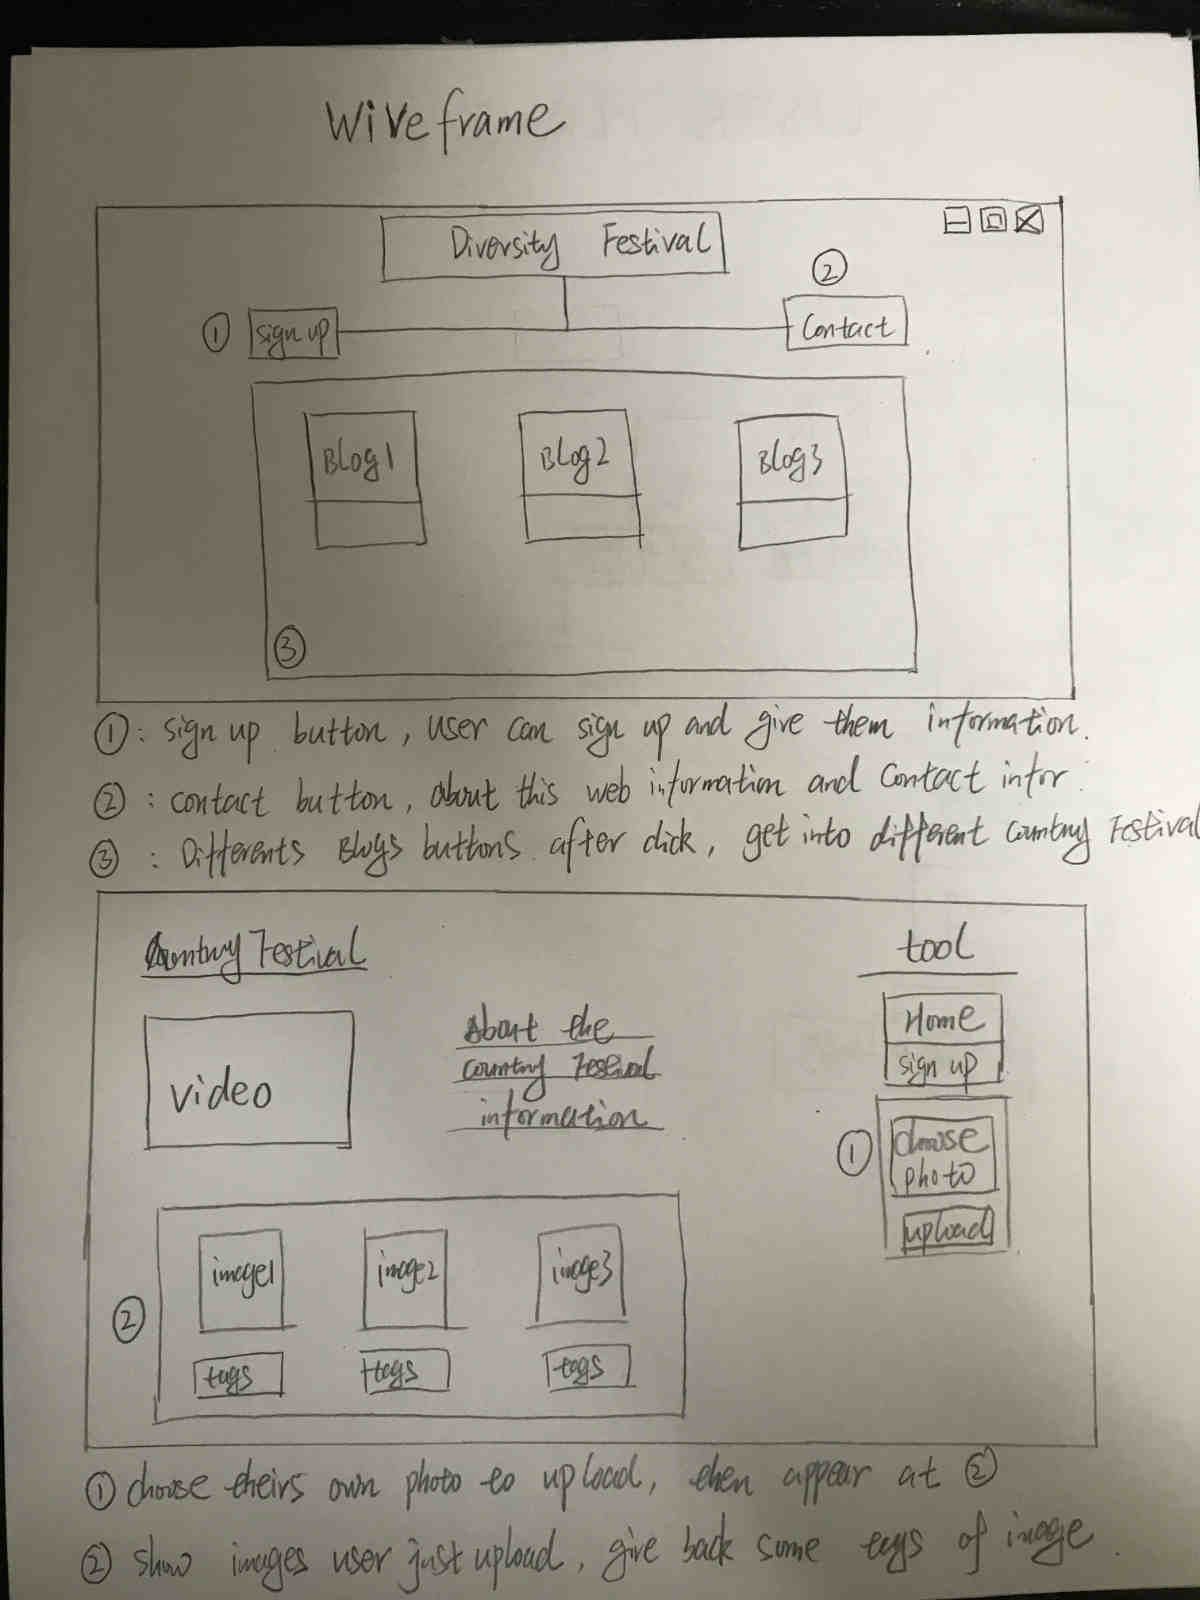 Wireframe
Diversity Festival
① sign up
Contact ②
Blog1 Blog2 Blog3
③
①: sign up button, user can sign up and give them information.
②: contact button, about this web information and contact infor.
③: Differents Blogs buttons. after click, get into different Country Festival
Country Festival
tool
Video
About the
country Festival
information
Home
sign up
①
choose
photo
upload
②
image1 image2 image3
tags tags tags
① choose theirs own photo to upload, then appear at ②
② show images user just upload, give back some tags of image.